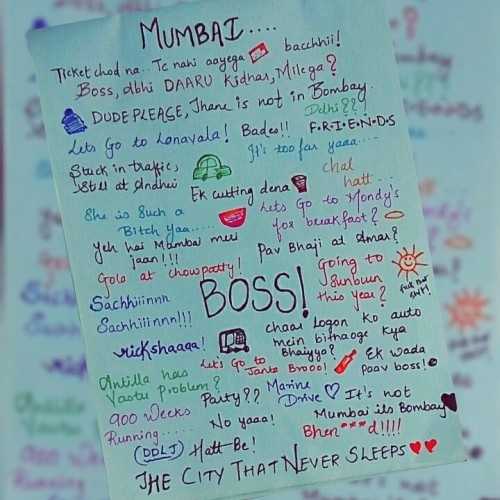 MUMBAI....
Ticket chod na.. Tc nahi aayega bacchhii!
Boss, abhi DAARU Kidhar, Milega?
DUDE PLEASE, Thane is not in Bombay.
Delhi???
Lets Go to Lonavala! Bades!! F.R.I.E.N.D.S
It's too far yaaa....
Stuck in traffic,
Still at Andhui
chal
hatt...
Ek cutting dena
She is Such a
Bitch Yaa.....
Lets Go to Mondy's
for breakfast?
Yeh hai Mumbai meri
jaan!!!
Pav Bhaji at Amar?
Gola at chowpatty!
Going to
Sunbun
this year?
Fuck that
Shit!
Sachhiiinnn
Sachhiiinnn!!!
BOSS!
chaar Logon ko auto
mein bithaoge kya
Bhaiyya?
rickshaaaa!
Let's Go to
Janta Brooo!
Ek wada
paav boss!
Antilla has
Vastu Problem?
Party??
Marine
Drive
It's not
Mumbai its Bombay
900 Weeks
Running......
(DDLJ)
No yaaa!
Bhen***d!!!!
Hatt Be!
THE CITY THAT NEVER SLEEPS